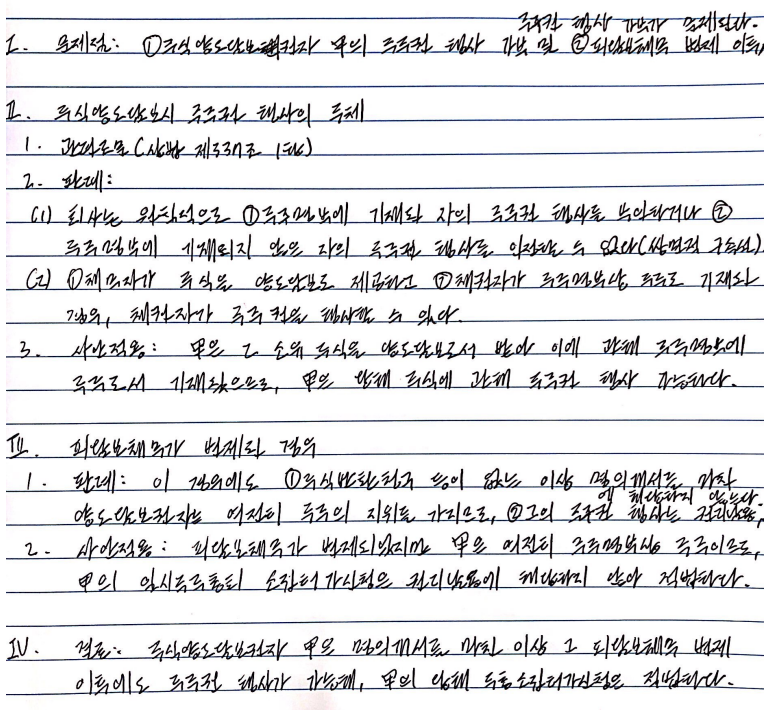 주주권 행사 가부가 문제된다.
I. 문제점: ①주식양도담보권자 甲의 주주권 행사 가부 및 ②피담보채무 변제 이후
II. 주식양도담보시 주주권 행사의 주체
1. 관련조문(상법 제337조 1항)
2. 판례:
(1) 회사는 원칙적으로 ①주주명부에 기재된 자의 주주권 행사를 부인하거나 ②
주주명부에 기재되지 않은 자의 주주권 행사를 인정할 수 없다(쌍면적 구속설)
(2) ①채무자가 주식을 양도담보로 제공하고 ②채권자가 주주명부상 주주로 기재된
경우, 채권자가 주주권을 행사할 수 있다.
3. 사안적용: 甲은 乙 소유 주식을 양도담보로서 받아 이에 관해 주주명부에
주주로서 기재됐으므로, 甲은 당해 주식에 관해 주주권 행사 가능하다.
III. 피담보채무가 변제된 경우
1. 판례: 이 경우에도 ①주식반환청구 등이 없는 이상 명의개서를 마친
에 해당하지 않는다.
양도담보권자는 여전히 주주의 지위를 가지므로, ②그의 주주권 행사는 권리남용,
2. 사안적용: 피담보채무가 변제되었지만 甲은 여전히 주주명부상 주주이므로,
甲의 임시주주총회 소집허가신청은 권리남용에 해당하지 않아 적법하다.
IV. 결론: 주식양도담보권자 甲은 명의개서를 마친 이상 그 피담보채무 변제
이후에도 주주권 행사가 가능해, 甲의 당해 주총소집허가신청은 적법하다.